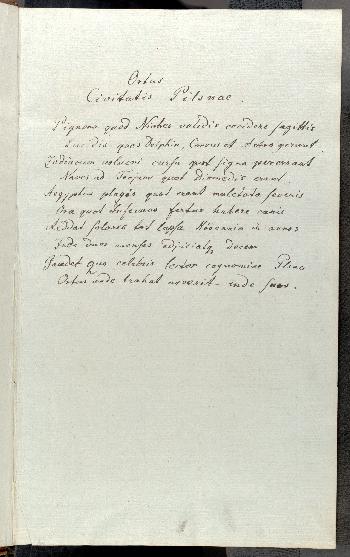 Ortus
Civitatis Pilsnae.
Pignora quod Niobes validis cecidere sagittis
Lucidis quos Delphin, Corvus et Astra gerunt
Zodiacum volucri cursu quot signa pererrant
Naves ad Trojam quot Diomedis erant.
Aegyptus plagis quot erat mulctata severis
Ora quot Infernus fertur habere canis
Addat solares tot lapsa in annos
Inde duos menses adjiciatq decem
Gaudet quo celebris lector cognomine Plsna
Ortus unde trahat noverit inde suos.